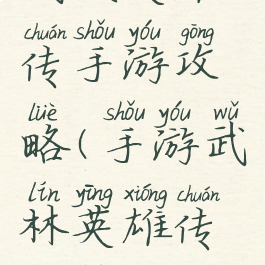 chuán shǒu yóu gōng
传手游攻
lüè shǒu yóu wǔ
略(手游武
lín yīng xióng chuán
林英雄传